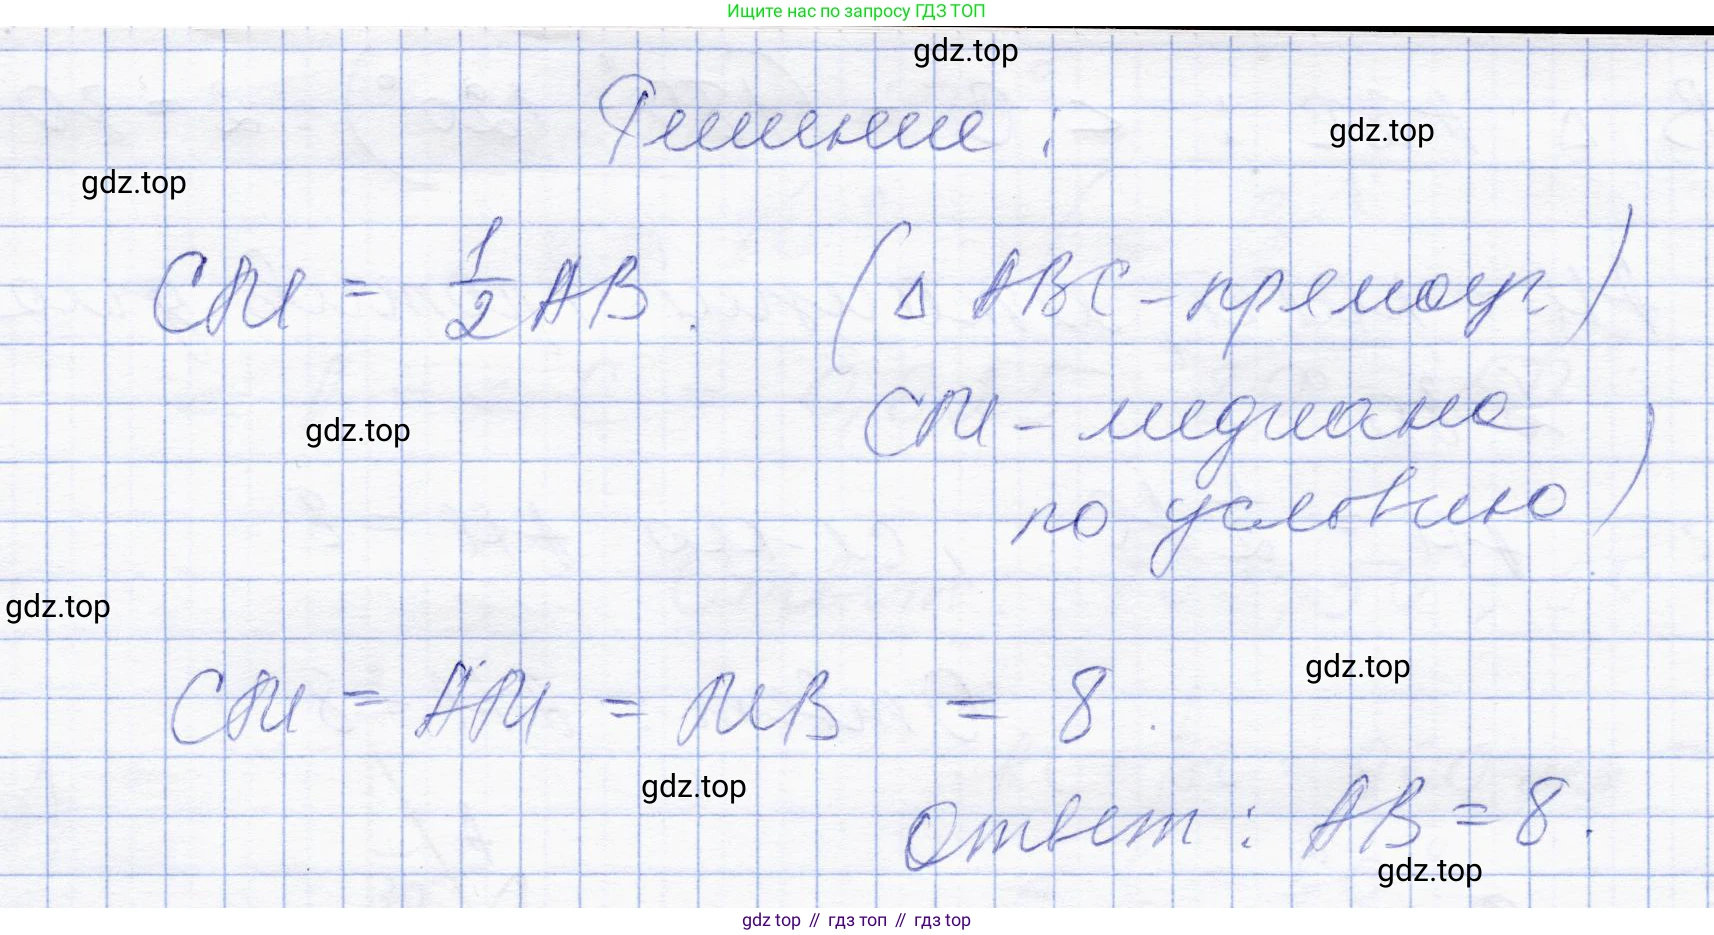 Ищите нас по запросу ГДЗ ТОП
gdz.top
Решение:
gdz.top
gdz.top
CM = 1/2 AB. (Δ ABC - прямоуг.)
CM - медиана
gdz.top
по условию)
gdz.top
gdz.top
CM = AM = MB = 8.
gdz.top
Ответ: AB = 8.
gdz.top
gdz top // гдз топ // гдз top